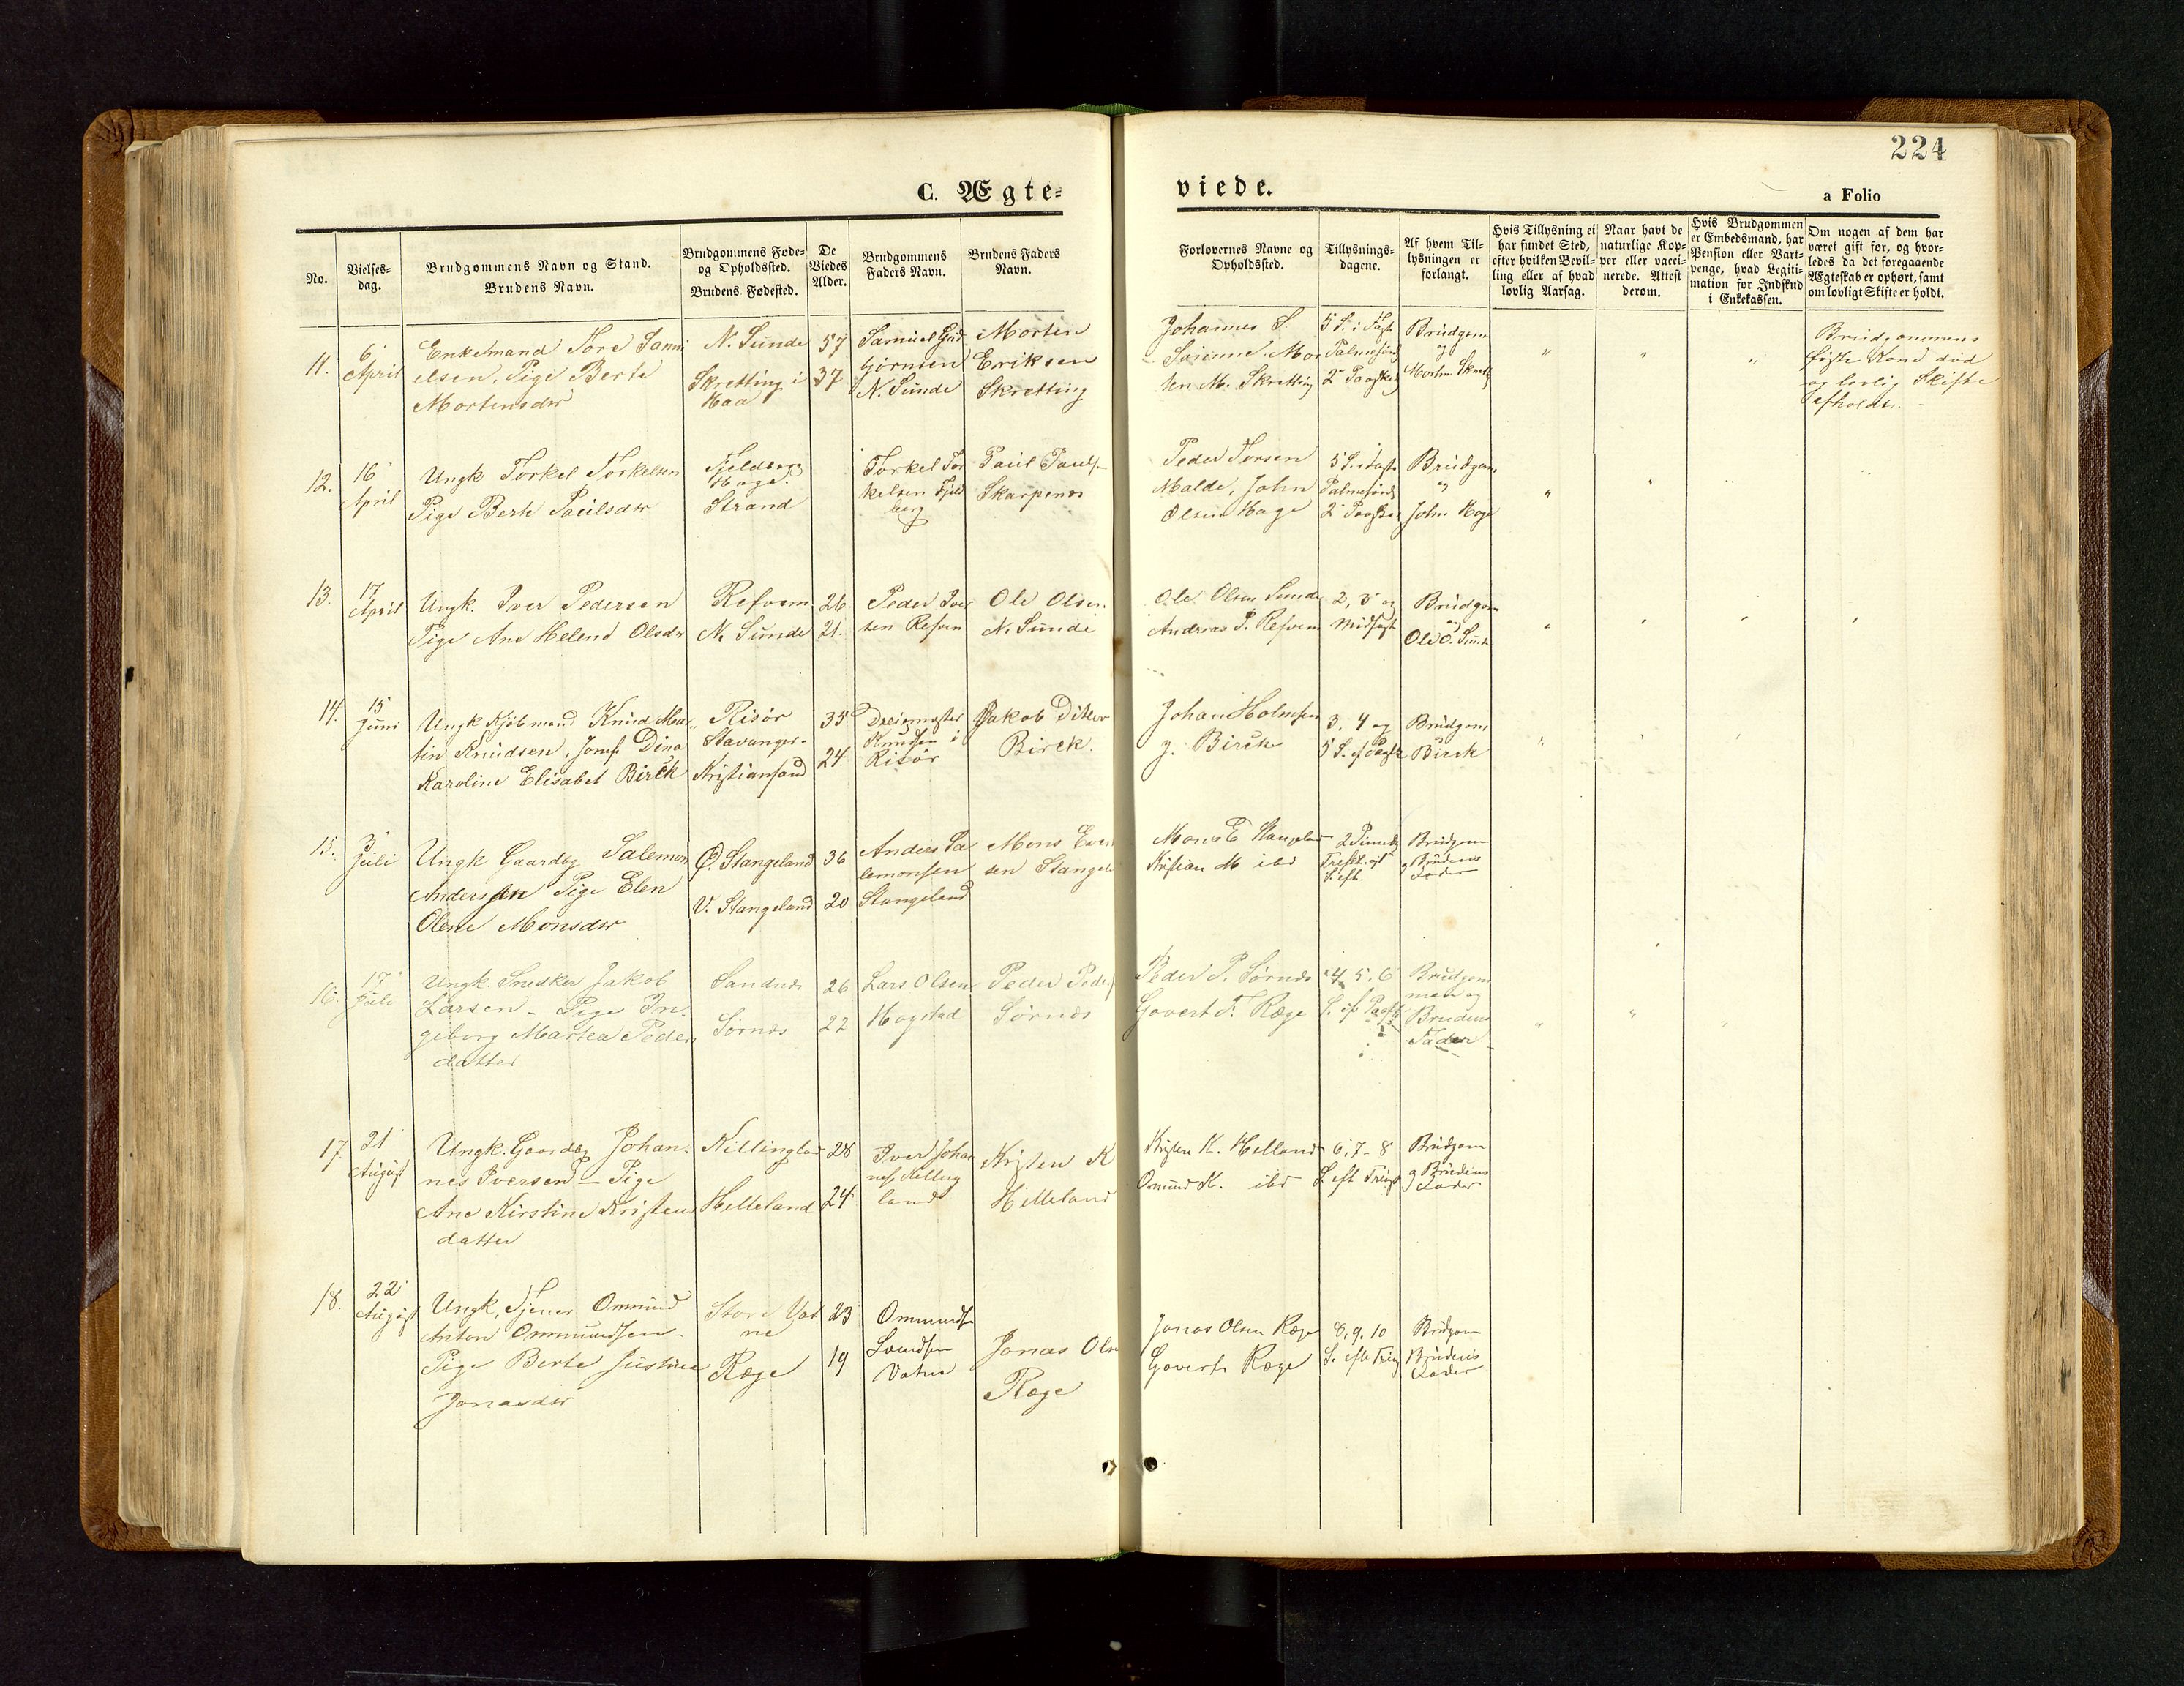 224
C. Ægte=
viede.
a Folio
No.
Vielses=
dag.
Brudgommens Navn og Stand.
Brudens Navn.
Brudgommens Føde=
og Opholdssted.
Brudens Fødested.
De
Viedes
Alder.
Brudgommens
Faders Navn.
Brudens Faders
Navn.
Forlovernes Navne og
Opholdssted.
Tillysnings=
dagene.
Af hvem Til=
lysningen er
forlangt.
Hvis Tillysning ei
har fundet Sted,
efter hvilken Bevil=
ling eller af hvad
lovlig Aarsag.
Naar havt de
naturlige Kop=
per eller vacci=
nerede. Attest
derom.
Hvis Brudgommen
er Embedsmand, har
Pension eller Vart=
penge, hvad Legiti=
mation for Indskud
i Enkekassen.
Om nogen af dem har
været gift før, og hvor=
ledes da det foregaaende
Ægteskab er ophørt, samt
om lovligt Skifte er holdt.
11.
6
April
Enkemand Tore Samu
elsen, Pige Berte
Mortensdtr
N. Sunde
Skretting i
Haa
57
37
Samuel Gud
bjørnsen
N. Sunde
Morten
Eriksen
Skretting
Johannes S.
Sørinne Mor
ten M. Skretting
5 S. i Fast
Palmesønd
2 Paaske
Brudgom
og
Morten Skrett
Brudgommens
første Kone død
og lovlig Skifte
afholdt.
12.
16
April
Ungk Torkel Torkelsen
Pige Berte Paulsdtr
Fjeldberg
Hage.
Strand
Torkel Tor
kelsen Fjeld
berg
Paul Pauls
Skarpenes
Peder Torsen
Malde, John
Olsen Hage
5 S. i Faste
Palmesønd
2 Paaske
Brudgom
og
John Hage
13.
17
April
Ungk. Iver Pedersen
Pige Ane Helene Olsdtr
Refsem
N. Sunde
26
21.
Peder Iver
sen Refsem
Ole Olsen
N. Sunde
Ole Olsen Sunde
Andreas P. Refsem
2, 3 og
Midfast
Brudgom
og
Ole O. Sunde
14.
15
Juni
Ungk Kjøbmand Knud Mar
tin Knudsen, Jomf Dina
Karoline Elisabet Birck
Risør
Stavanger-
Kristiansand
35
24
Dreiemester
Knudsen i
Risør
Jakob Ditlev
Birck.
Johan Holmsen
J. Birck
3, 4 og
5 S. ef Paaske
Brudgom
Birck
15.
3
Juli
Ungk Gaardbg Salemon
Anderssen Pige Elen
Olene Monsdtr
Ø. Stangeland
V. Stangeland
36
20
Anders Sa
lemonsen
Stangeland
Mons Even
sen Stangel
Mons E Stangeland
Kristian M ibd
2 Pinsed
Trefold. og 1
S. eft.
Brudgom
g Brudens
Fader
16.
17
Juli
Ungk. Snedker Jakob
Larsen - Pige In-
geborg Martea Peders
datter
Sandnes
Sørnes
26
22
Lars Olsen
Hogstad
Peder Peders
Sørnes
Peder P. Sørnes
Govert T. Ræge
4, 5, 6
S. eft Paaske
Brudgom
men og
Brudens
Fader
17
21
August
Ungk. Gaardbg Johan-
nes Iversen - Pige
Ane Kirstine Kristens
datter
Killingland
Helleland
28
24
Iver Johan
nes. Killing
land
Kristen K
Helleland
Kristen K. Helland
Omund K. ibd
6, 7 - 8
S. eft Trefold
Brudgom
g Brudens
Fader
18.
22
August
Ungk, Tjener Ommund
Anton Ommundsen-
Pige Berte Justine
Jonasdtr
Store Vat
ne
Ræge
23
19
Ommund
Svendsen
Vatne
Jonas Ols
Ræge
Jonas Olsen Ræge
Govert Ræge
8, 9, 10
S. eft Tref
Brudgom
Brudens
Fader